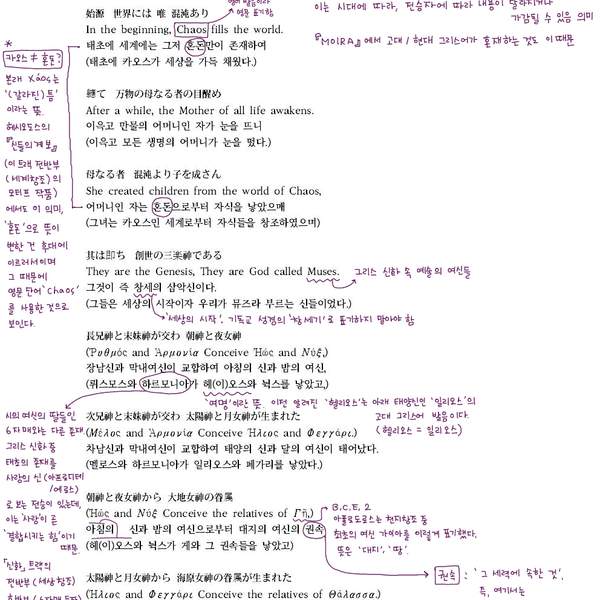 영어 발음이라
영문 표기함
이는 시대에 따라, 전승자에 따라 내용이 달라지거나
가감될 수 있음 의미
『MOIRA』에서 고대/현대 그리스어가 혼재하는 것도 이 때문
始源 世界には 唯 混沌あり
In the beginning, Chaos fills the world.
태초에 세계에는 그저 혼돈만이 존재하여
(태초에 카오스가 세상을 가득 채웠다.)
*
카오스 ≠ 혼돈?
본래 Χάος는
'(갈라진) 틈'
이라는 뜻.
헤시오도스의
『신들의 계보』
(이 트랙 전반부
(세계창조)의
모티프 작품)
에서도 이 의미,
'혼돈'으로 뜻이
변한 건 후대에
이르러서이며
그 때문에
영문 단어 'Chaos'
를 사용한 것으로
보인다.
軈て 万物の母なる者の目醒め
After a while, the Mother of all life awakens.
이윽고 만물의 어머니인 자가 눈을 뜨니
(이윽고 모든 생명의 어머니가 눈을 떴다.)
母なる者 混沌より子を成さん
She created children from the world of Chaos,
어머니인 자는 혼돈으로부터 자식을 낳았으매
(그녀는 카오스인 세계로부터 자식들을 창조하였으며)
其は即ち 創世の三楽神である
They are the Genesis, They are God called Muses.
그리스 신화 속 예술의 여신들
그것이 즉 창세의 삼악신이다.
(그들은 세상의 시작이자 우리가 뮤즈라 부르는 신들이었다.)
'세상의 시작'. 기독교 성경의 '창세기'로 표기하지 말아야 함
長兄神と末妹神が交わ 朝神と夜女神
(Ρυθμός and Ἁρμονία Conceive Ἠώς and Νύξ,)
장남신과 막내여신이 교합하여 아침의 신과 밤의 여신,
(뤼스모스와 하르모니아가 헤(이)오스와 뉙스를 낳았고,)
'여명'이란 뜻. 이런 알려진 '헬리오스'는 아래 태양신인 '일리오스'의
고대 그리스어 발음이다.
(헬리오스 = 일리오스)
시의 여신의 딸들인
6자매와는 다른 존재
그리스 신화 중
태초의 존재를
사랑의 신 (아프로디테
/에로스)
로 보는 전승이 있는데,
이는 '사랑'이 곧
'결합시키는 힘'이기
때문.
次兄神と末妹神が交わ 太陽神と月女神が生まれた
(Μέλος and Ἁρμονία Conceive Ἥλιος and Φεγγάρι.)
차남신과 막내여신이 교합하여 태양의 신과 달의 여신이 태어났다.
(멜로스와 하르모니아가 일리오스와 페가리를 낳았다.)
朝神と夜女神から 大地女神の眷属
(Ἠώς and Νύξ Conceive the relatives of Γῆ,)
아침의 신과 밤의 여신으로부터 대지의 여신의 권속
(헤(이)오스와 뉙스가 게와 그 권속들을 낳았고)
B.C.E. 2
아폴로도로스는 천지창조 중
최초의 여신 가이아를 이렇게 표기했다.
뜻은 '대지', '땅'.
권속 : '그 세력에 속한 것',
즉, 여기서는
『신화』 트랙의
전반부 (세상창조)
太陽神と月女神から 海原女神の眷属が生まれた
(Ἥλιος and Φεγγάρι Conceive the relatives of Θάλασσα.)